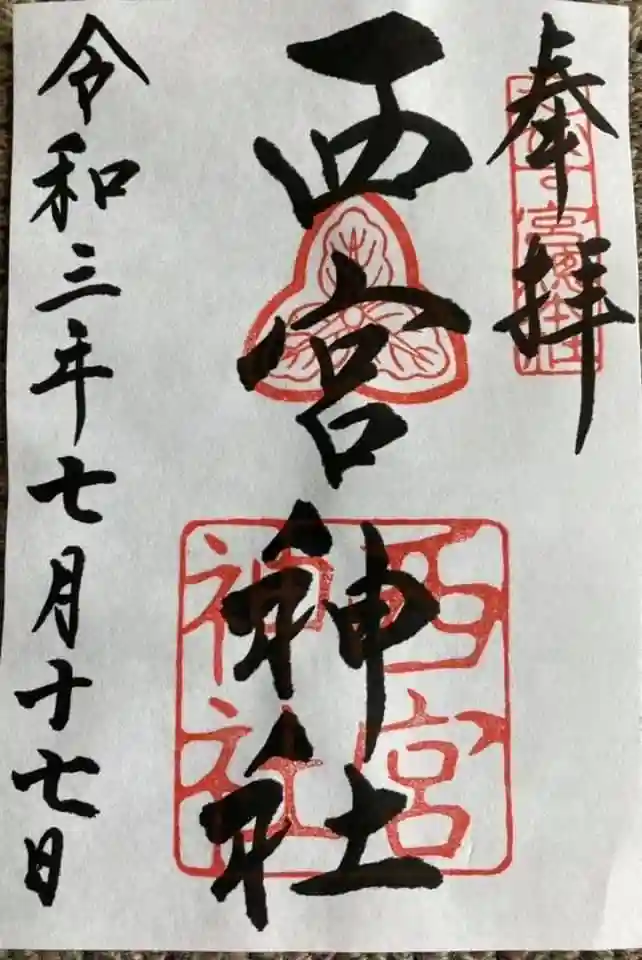 奉拝
西宮神社
令和三年七月十七日
西宮
神社